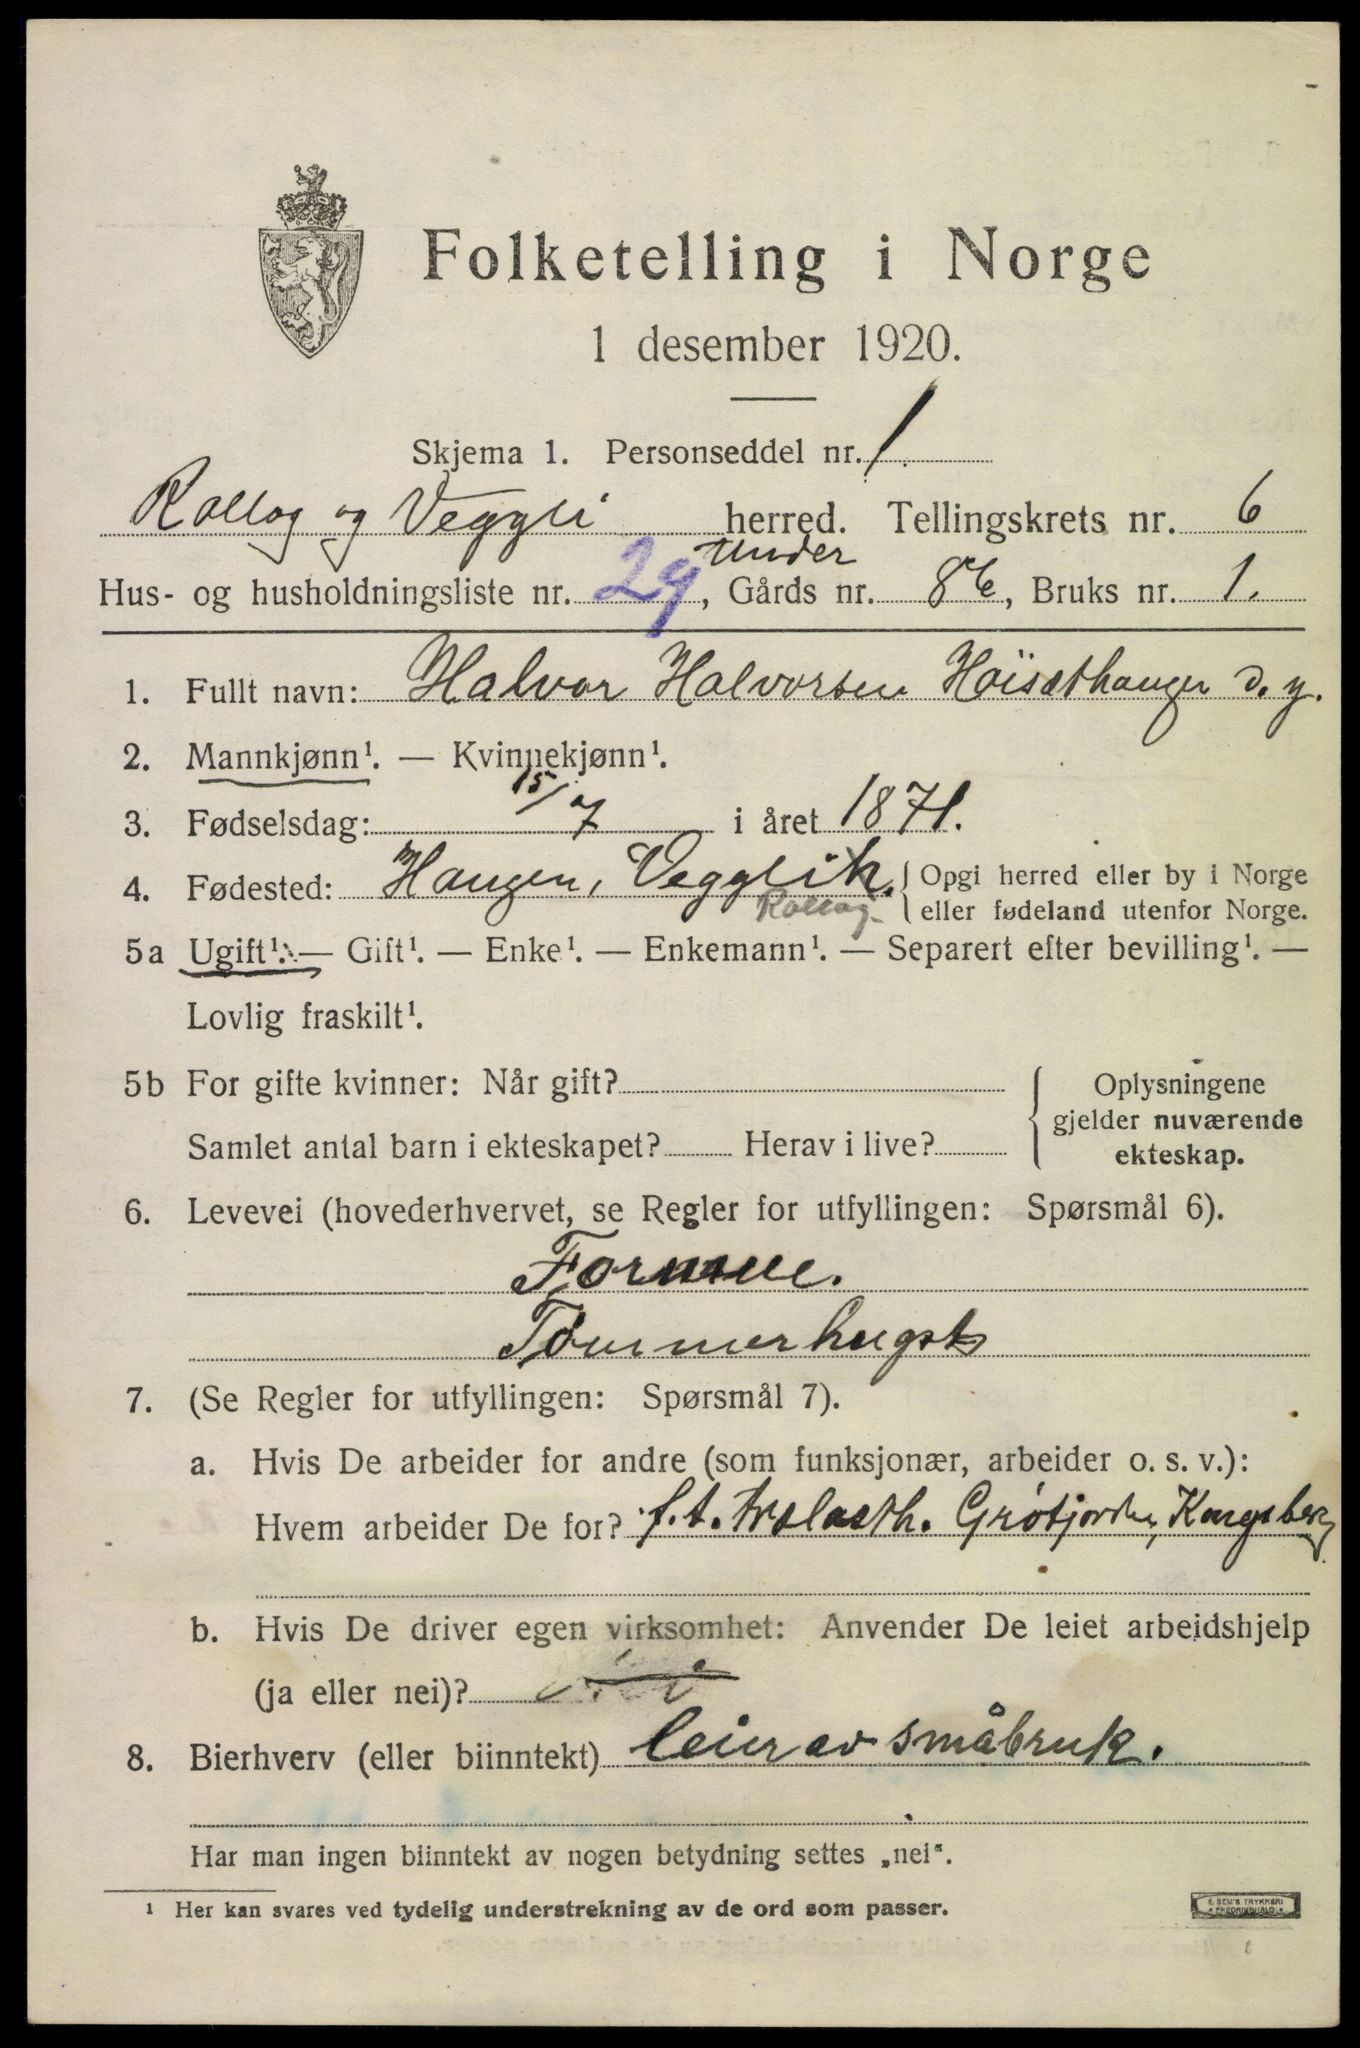 Folketelling i Norge
1 desember 1920.
Skjema 1. Personseddel nr. 1.
Rollag og Veggli herred. Tellingskrets nr. 6
under
Hus- og husholdningsliste nr. 29, Gårds nr. 86, Bruks nr. 1.
1. Fullt navn: Halvor Halvorsen Höisæthaugen d. y.
2. Mannkjønn¹. — Kvinnekjønn¹.
3. Fødselsdag: 15/7 i året 1871.
4. Fødested: Haugen, Veggli
Rollag.
Opgi herred eller by i Norge
eller fødeland utenfor Norge.
5a Ugift¹. — Gift¹. — Enke¹. — Enkemann¹. — Separert efter bevilling¹. —
Lovlig fraskilt¹.
5b For gifte kvinner: Når gift?
Samlet antal barn i ekteskapet? Herav i live?
Oplysningene
gjelder nuværende
ekteskap.
6. Levevei (hovederhvervet, se Regler for utfyllingen: Spørsmål 6).
Formue.
Tømmerhugst
7. (Se Regler for utfyllingen: Spørsmål 7).
a. Hvis De arbeider for andre (som funksjonær, arbeider o. s. v.):
Hvem arbeider De for? f. t. trælasth. Grøtjorden, Kongsberg
b. Hvis De driver egen virksomhet: Anvender De leiet arbeidshjelp
(ja eller nei)? Nei
8. Bierhverv (eller biinntekt) leier av småbruk.
Har man ingen biinntekt av nogen betydning settes „nei“.
¹ Her kan svares ved tydelig understrekning av de ord som passer.
E. SEM'S TRYKKERI
FREDRIKSHALD